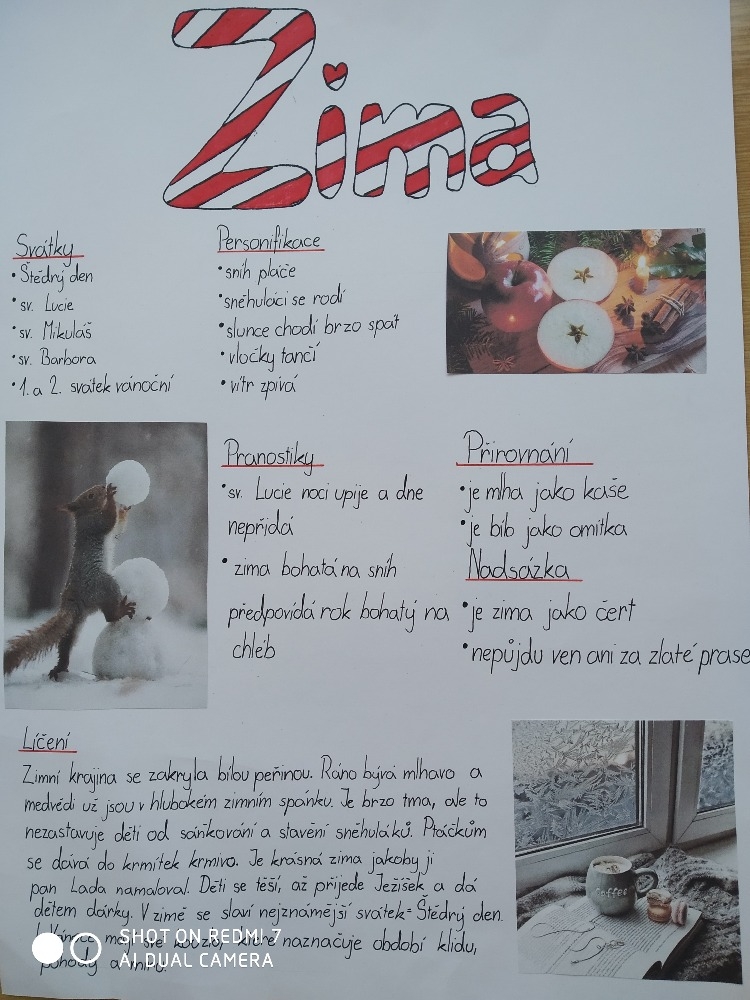 Zima
Svátky
• Štědrý den
• sv. Lucie
• sv. Mikuláš
• sv. Barbora
• 1. a 2. svátek vánoční
Personifikace
• sníh pláče
• sněhuláci se rodí
• slunce chodí brzo spát
• vločky tančí
• vítr zpívá
Pranostiky
• sv. Lucie noci upije a dne
nepřidá
• zima bohatá na sníh
předpovídá rok bohatý na
chléb
Přirovnání
• je mlha jako kaše
• je bílo jako omítka
Nadsázka
• je zima jako čert
• nepůjdu ven ani za zlaté prase
Líčení
Zimní krajina se zakryla bílou peřinou. Ráno bývá mlhavo a
medvědi už jsou v hlubokém zimním spánku. Je brzo tma, ale to
nezastavuje děti od sáňkování a stavění sněhuláků. Ptáčkům
se dává do krmítek krmivo. Je krásná zima jakoby ji
pan Lada namaloval. Děti se těší, až přijede Ježíšek a dá
dětem dárky. V zimě se slaví nejznámější svátek - Štědrý den.
Vánoce mají své kouzlo, které naznačuje období klidu,
pohody a míru.
Coffee
SHOT ON REDMI 7
AI DUAL CAMERA